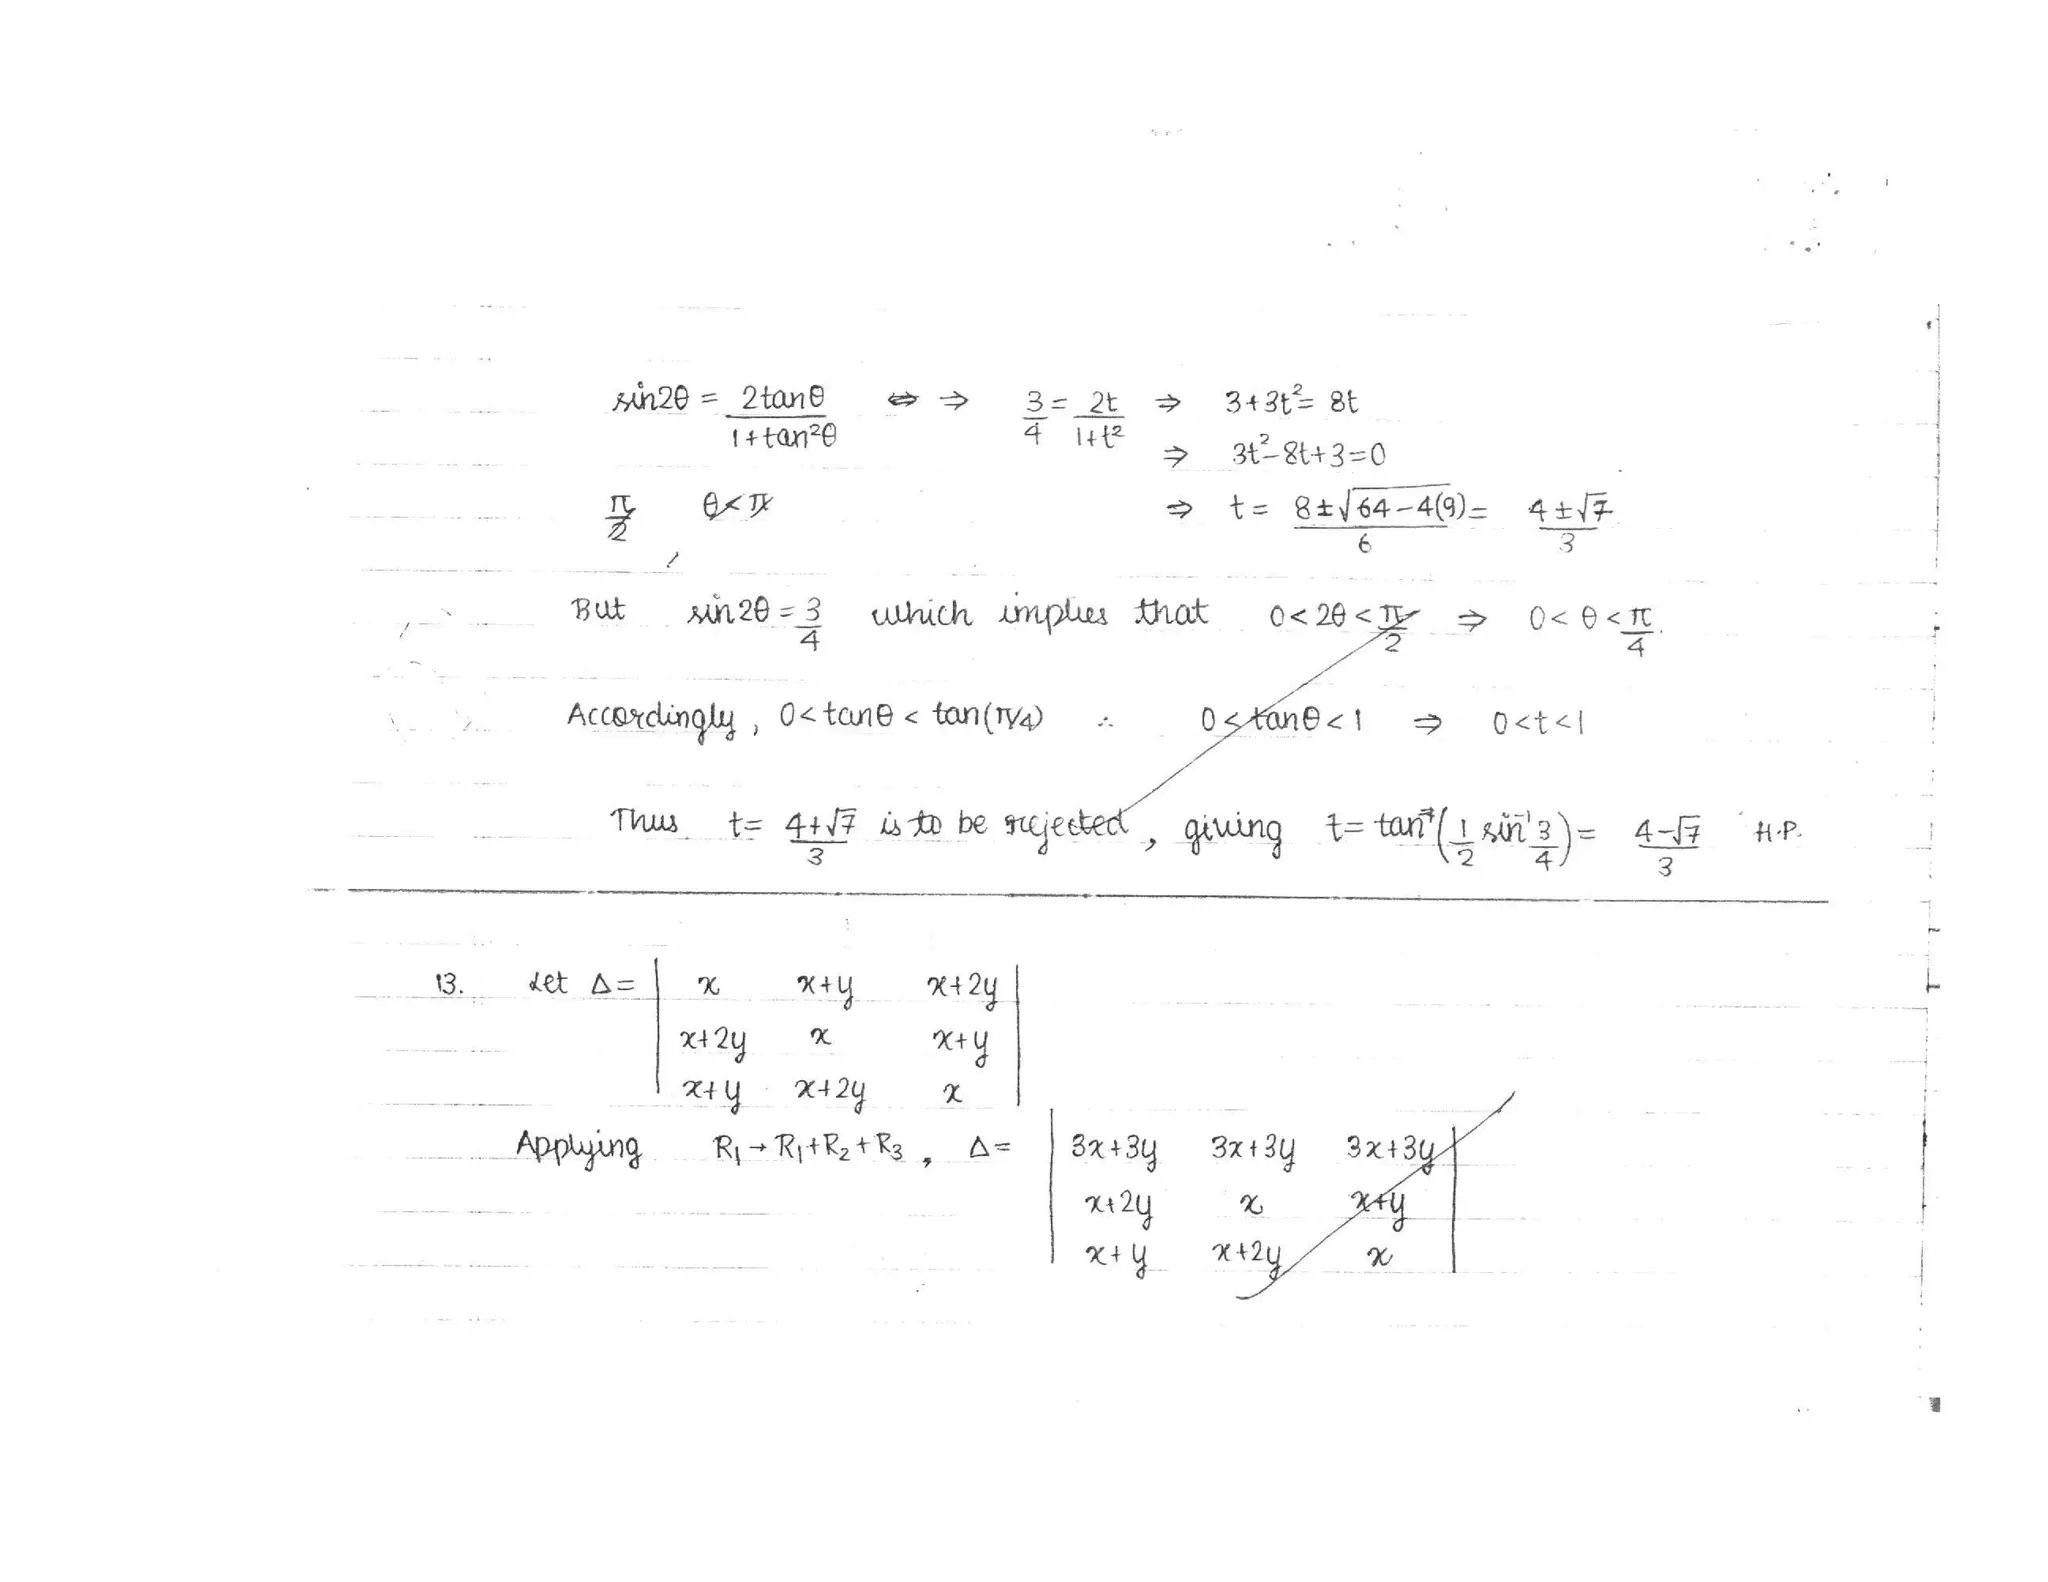 sin2θ = 2tanθ/1+tan²θ ⇔ ⇒ 3/4 = 2t/1+t² ⇒ 3+3t² = 8t
⇒ 3t²-8t+3=0
π/2 θ<π ⇒ t = 8±√64-4(9)/6 = 4±√7/3
But sin2θ = 3/4 which implies that 0<2θ<π/2 ⇒ 0<θ<π/4.
Accordingly, 0<tanθ<tan(π/4) ∴ 0<tanθ<1 ⇒ 0<t<1
Thus t= 4+√7/3 is to be rejected, giving t= tan(1/2 sin⁻¹ 3/4) = 4-√7/3 H.P.
13. Let Δ = | x x+y x+2y |
| x+2y x x+y |
| x+y x+2y x |
Applying R₁→R₁+R₂+R₃, Δ = | 3x+3y 3x+3y 3x+3y |
| x+2y x x+y |
| x+y x+2y x |